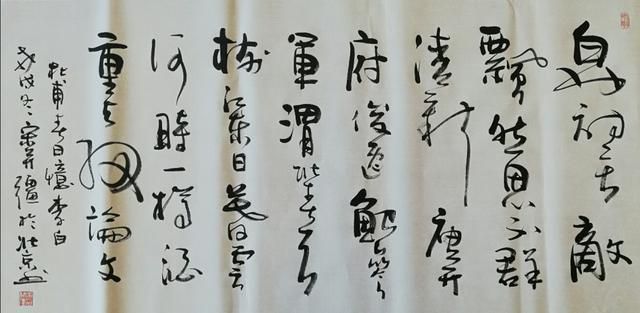 白也詩无敵
飄然思不群
清新庾开
府俊逸鮑參
軍渭北春天
樹江東日暮雲
何時一樽酒
重与細論文
杜甫春日憶李白
戊戌冬 宋开疆於北京